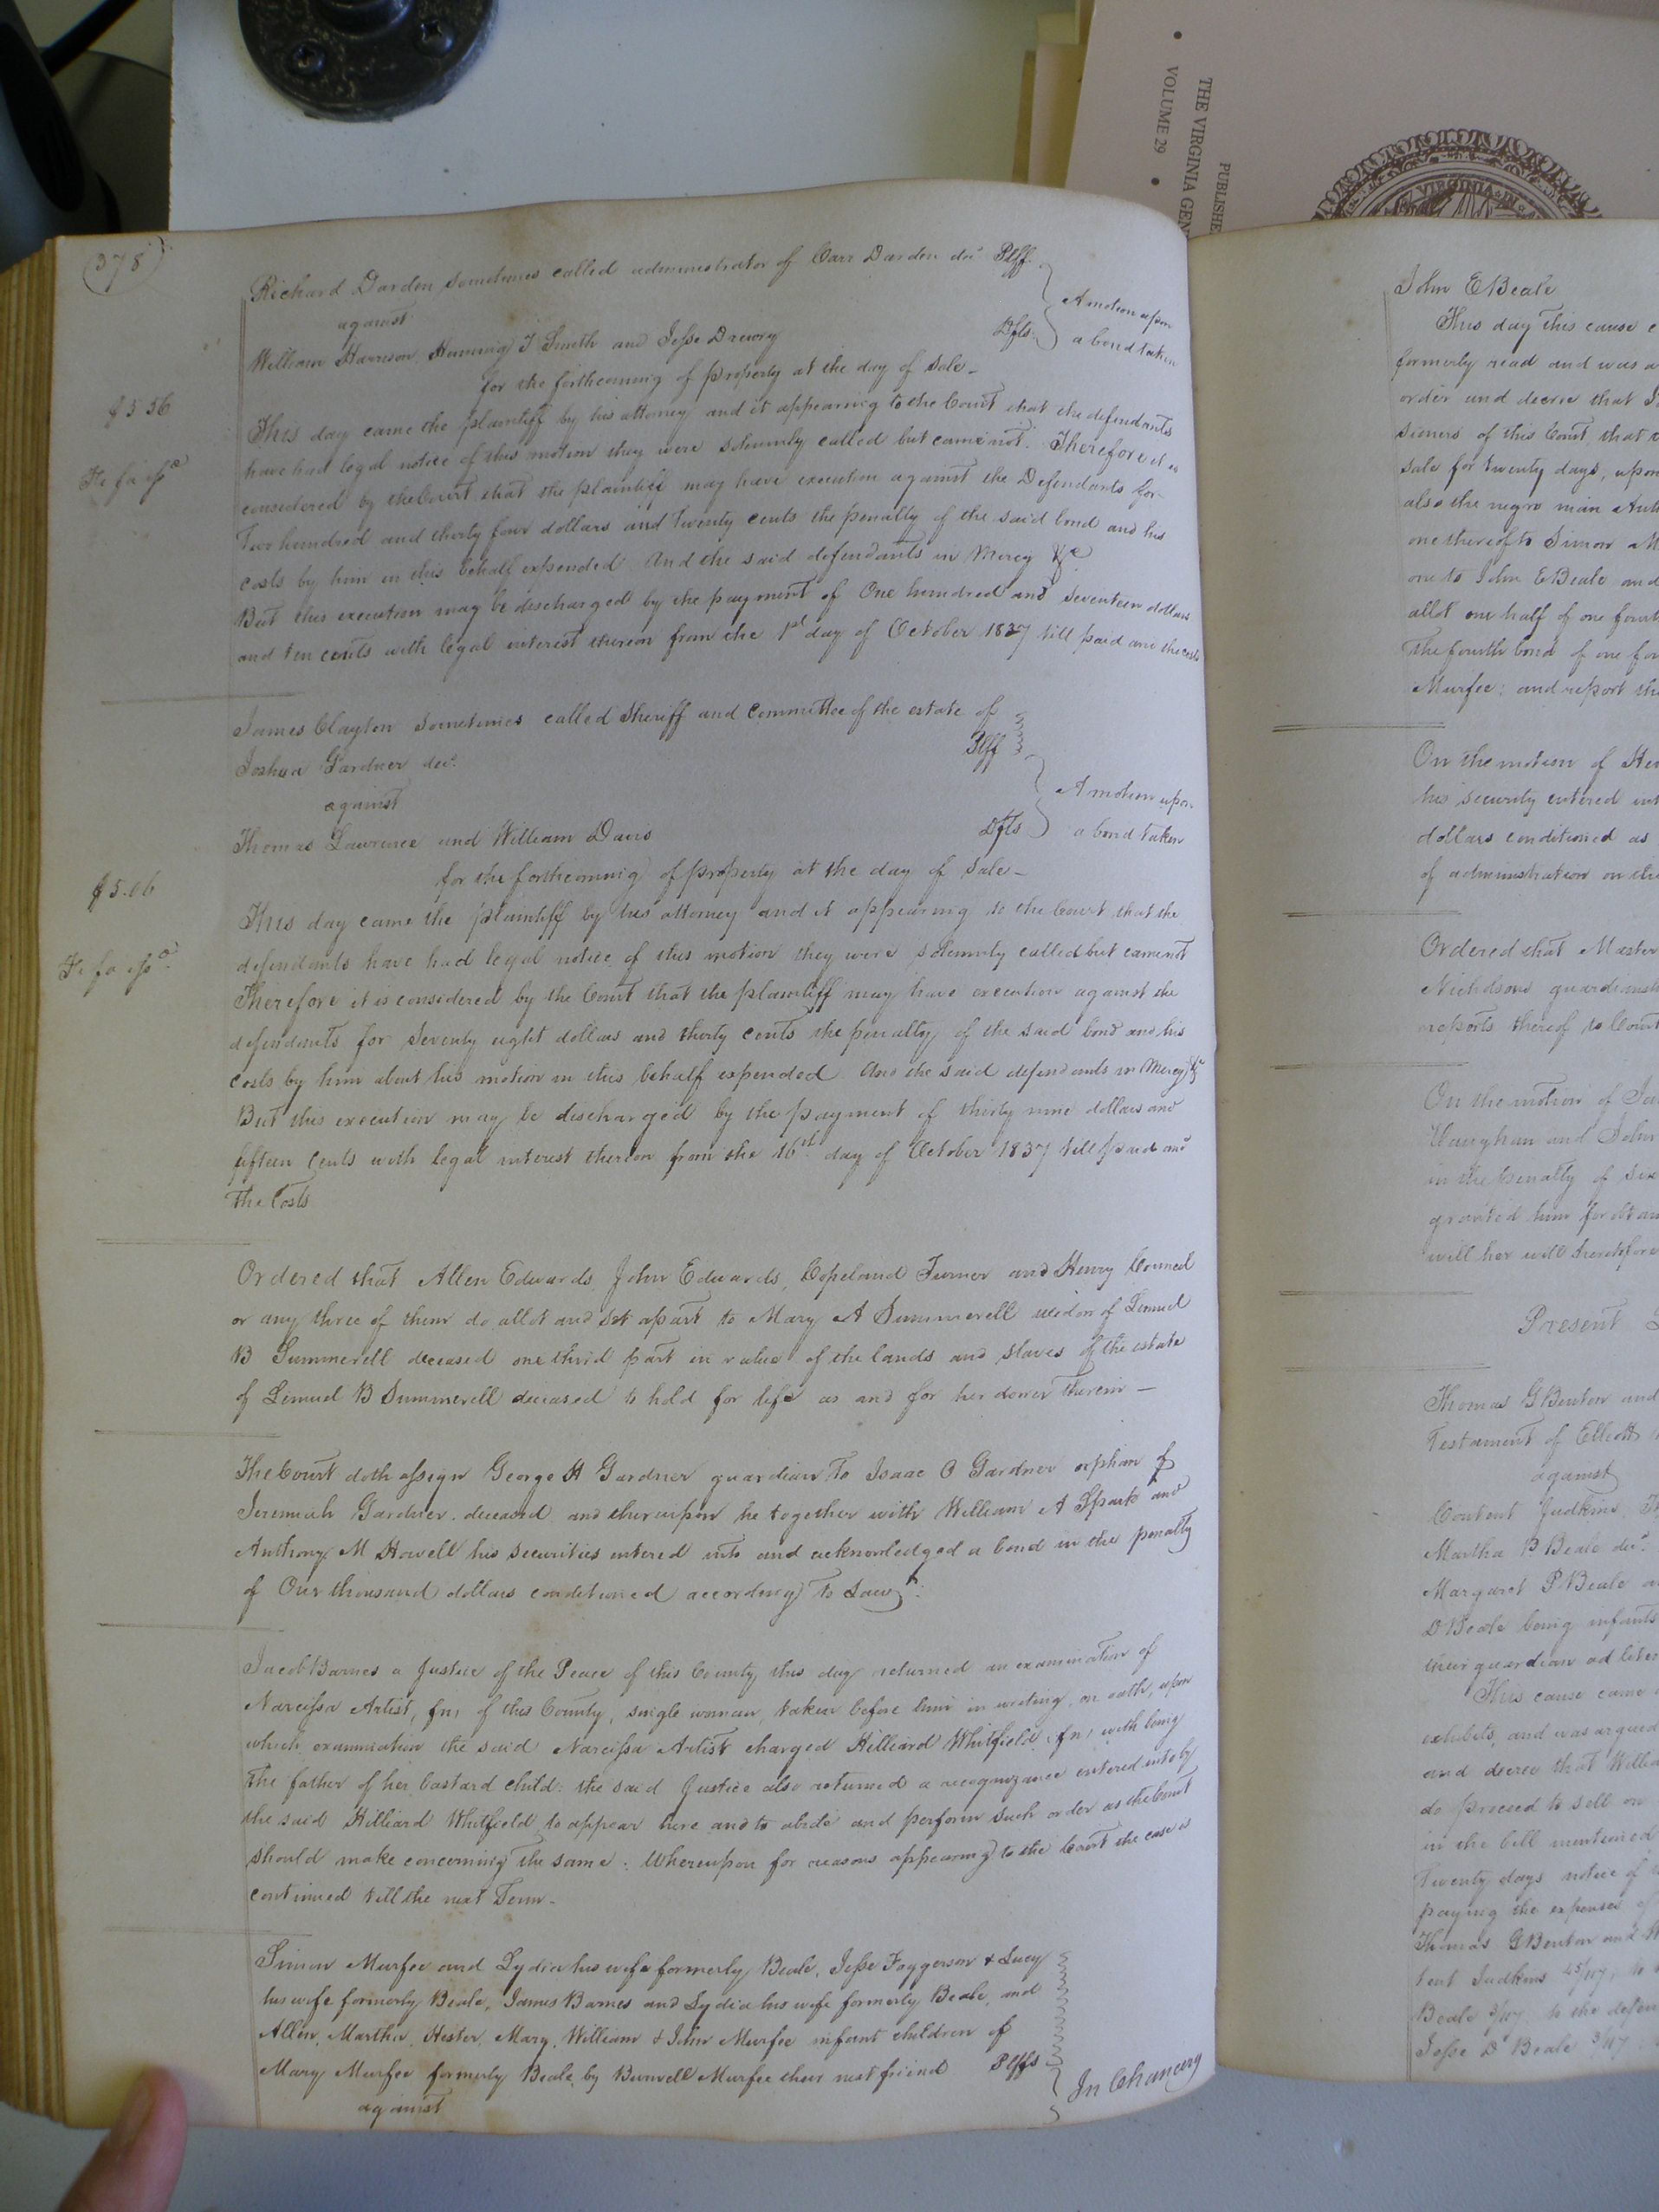 PUBLISHE
THE VIRGINIA GEN
VOLUME 29
VIRGINIA
378
Richard Darden sometimes called administrator of Carr Darden decd Plff.
against
A motion upon
William Harrison, Henning T Smith and Jesse Drewry Dfts. a bond taken
for the forthcoming of property at the day of Sale_
$5 56
This day came the plaintiff by his attorney and it appearing to the Court that the defendants
have had legal notice of this motion they were solemnly called but came not. Therefore it is
Fi fa issd
considered by the Court that the plaintiff may have execution against the Defendants for
Two hundred and thirty four dollars and twenty cents the penalty of the said bond and his
costs by him in this behalf expended. And the said defendants in Mercy &c
But this execution may be discharged by the payment of One hundred and seventeen dollars
and ten cents with legal interest thereon from the 1st day of October 1837 till paid and the costs
James Clayton Sometimes called Sheriff and Committee of the estate of
Joshua Gardner decd. Plff
against
A motion upon
Thomas Lawrence and William Davis Dfts a bond taken
for the forthcoming of property at the day of Sale_
$5.06
This day came the plaintiff by his attorney and it appearing to the Court that the
defendants have had legal notice of this motion they were solemnly called but came not
Fi fa issd.
Therefore it is considered by the Court that the plaintiff may have execution against the
defendants for Seventy eight dollars and thirty cents the penalty of the said bond and his
costs by him about his motion in this behalf expended And the said defendants in Mercy &c
But this execution may be discharged by the payment of thirty nine dollars and
fifteen Cents with legal interest thereon from the 16th day of October 1837 till paid and
The Costs
Ordered that Allen Edwards, John Edwards, Copeland Turner and Henry Council
or any three of them do allot and set apart to Mary A Summerell widow of Lemuel
B Summerell deceased one third part in value of the lands and slaves of the estate
of Lemuel B Summerell deceased to hold for life as and for her dower therein —
The Court doth assign George H Gardner guardian to Isaac O Gardner orphan of
Jeremiah Gardner deceased and thereupon he together with William A and
Anthony M Howell his securities entered into and acknowledged a bond in the penalty
of One thousand dollars conditioned according to Law
Jacob Barnes a Justice of the Peace of this County this day returned an examination of
Narcissa Artist, fn, of this County, single woman, taken before him in writing, on oath, upon
which examination the said Narcissa Artist charged Hilliard Whitfield fn, with being
the father of her bastard child: the said Justice also returned a recognizance entered into by
the said Hilliard Whitfield to appear here and to abide and perform such order as the Court
should make concerning the same: Whereupon for reasons appearing to the Court the case is
continued till the next Term_
Simon Murfee and Lydia his wife formerly Beale, Jesse Faggerson & Lucy
his wife formerly Beale, James Barnes and Lydia his wife formerly Beale, and
Allen, Martha, Hester, Mary, William & John Murfee infant children of
Mary Murfee formerly Beale by Burwell Murfee their next friend Plffs
In Chancery
against
John E Beale
This day this cause c
formerly read and was a
order and decree that
sioners of this Court, that
sale for twenty days, upon
also the negro man
one thereof to Simon
one to John E Beale and
allot one half of one fourth
The fourth bond of one
Murfee; and report
On the motion of
his security entered
dollars conditioned as
of administration on
Ordered that Master
Nicholson guardian
reports thereof to Court
On the motion of
Vaughan and John
in the penalty of
granted him for
will her will therefore
Present
Thomas G Benton and
Testament of Elliott
against
Content Judkins
Martha B Beale decd.
Margaret P Beale
D Beale being infants
their guardian ad
This cause came
exhibits, and was argued
and decree that
do proceed to sell on
in the bill mentioned
Twenty days notice of
paying the expenses of
Thomas G Benton and
tent Judkins 45/117,
Beale 3/117, to the
Jesse D Beale 3/117